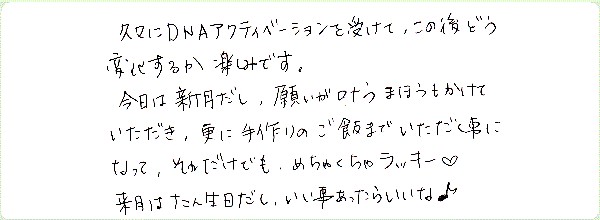 久々にDNAアクティベーションを受けて、この後どう
変化するか楽しみです。
今日は新月だし、願いが叶うまほうもかけて
いただき、更に手作りのご飯までいただく事に
なって、それだけでも、めちゃくちゃラッキー♡
来月はたん生日だし、いい事あったらいいな♪